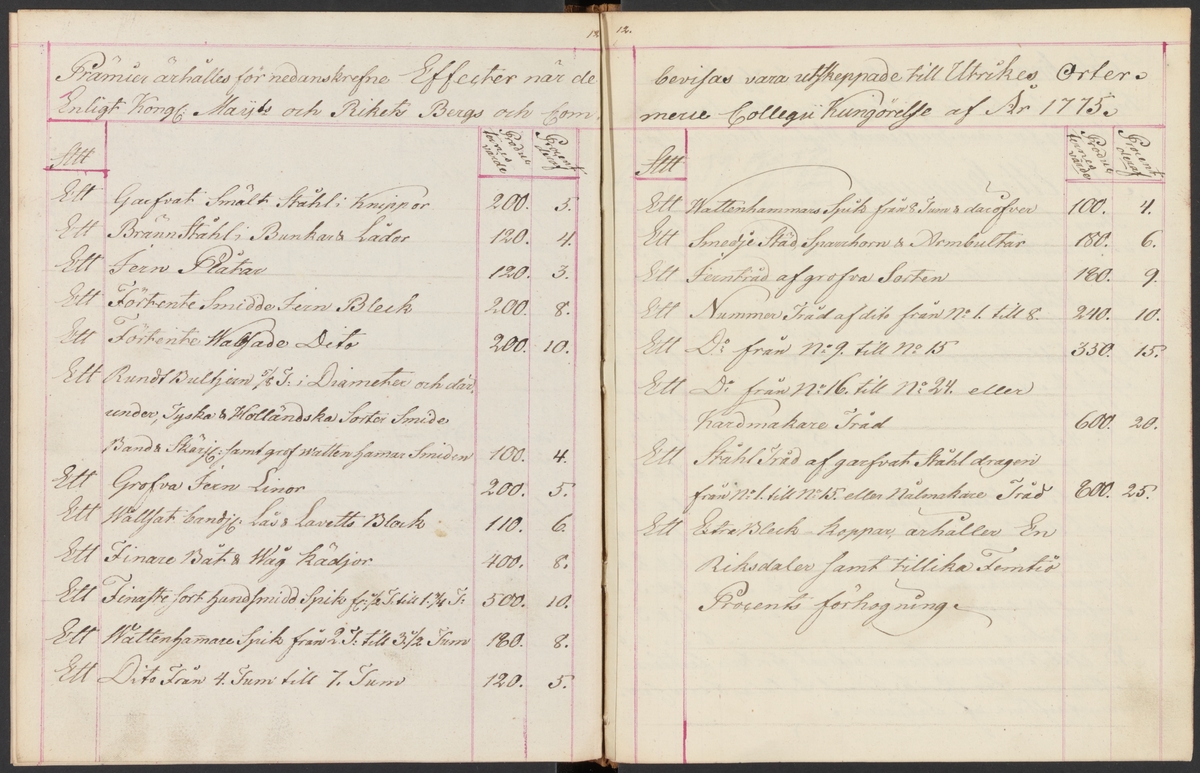 12.
Prämier ärhålles för nedanskrefne Effecter när de
Enligt Kongl: Maijts och Rikets Bergs och Com
Stt
Produc
ternes
värde
Procent
deraf
Ett Garfvat Smält Ståhl i Knippor 200. 5.
Ett BrännStåhl i Bunkar & Lådor 120. 4.
Ett Jern Plåtar 120. 3.
Ett Förtente Smidde Jern Bleck 200. 8.
Ett Förtente Walsade Dito 200. 10.
Ett Rundt Bultjern 5/8 T: i Diameter och där
under, Tyska & Holländska Sorter Smide
Band & Skärj: samt grof wattenhamar Smiden 100. 4.
Ett Grofva Jern Linor 200. 5.
Ett Wallsat bandj: Lås & Lavetts Bleck 110. 6.
Ett Finare Båt & Wåg Kädjor 400. 8.
Ett Finaste sort handsmidd Spik fr: 1/2 T: till 1.3/4 T: 500. 10.
Ett Wattenhamare Spik från 2 T: till 3.1/2 Tum 180. 8.
Ett Dito Från 4. Tum till 7. Tum 120. 5.
12.
bevisas vara utskeppade till Utrikes Orter
mercie Collegii Kungörelse af År 1775.
Stt
Produc
ternes
värde
Procent
deraf
Ett Wattenhammars Spik från 8 Tum & däröfver 100. 4.
Ett Smedje Städ, Sparrhorn & Armbultar 180. 6.
Ett Jerntråd af grofva Sorten 180. 9.
Ett Nummer Tråd af dito från No 1. till 8. 240. 10.
Ett Do från No 9. till No 15 330. 15.
Ett Do från No 16. till No 24. eller
Kardmakare Tråd 600. 20.
Ett Ståhl Tråd af garfvat Ståhl dragen
från No 1. till No 15. eller Nålmakare Tråd 800. 25.
Ett Extra Bleck Koppar, ärhåller En
Riksdaler samt tillika Femtio
Procents förhögning